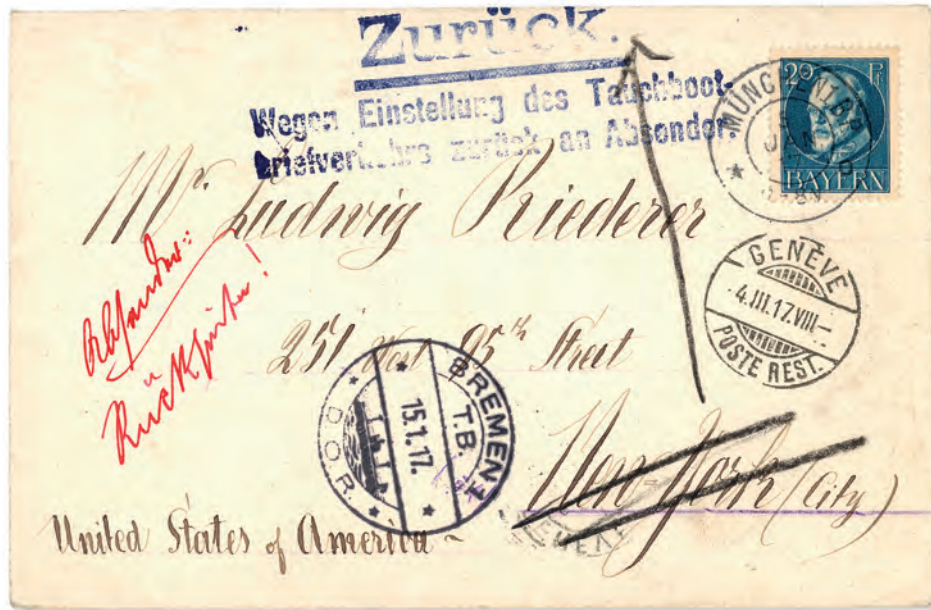 Zurück.
Wegen Einstellung des Tauchboot-
briefverkehrs zurück an Absender.
20 Pf
BAYERN
MÜNCHEN
JAN
Mr. Ludwig Riederer
Absender:
Rückseite!
GENÈVE
4.III.17.VIII—
POSTE REST.
251 West 95th Street
BREMEN 1
T.B.
15.1.17.
D.O.R.
New-York (City)
United States of America ~